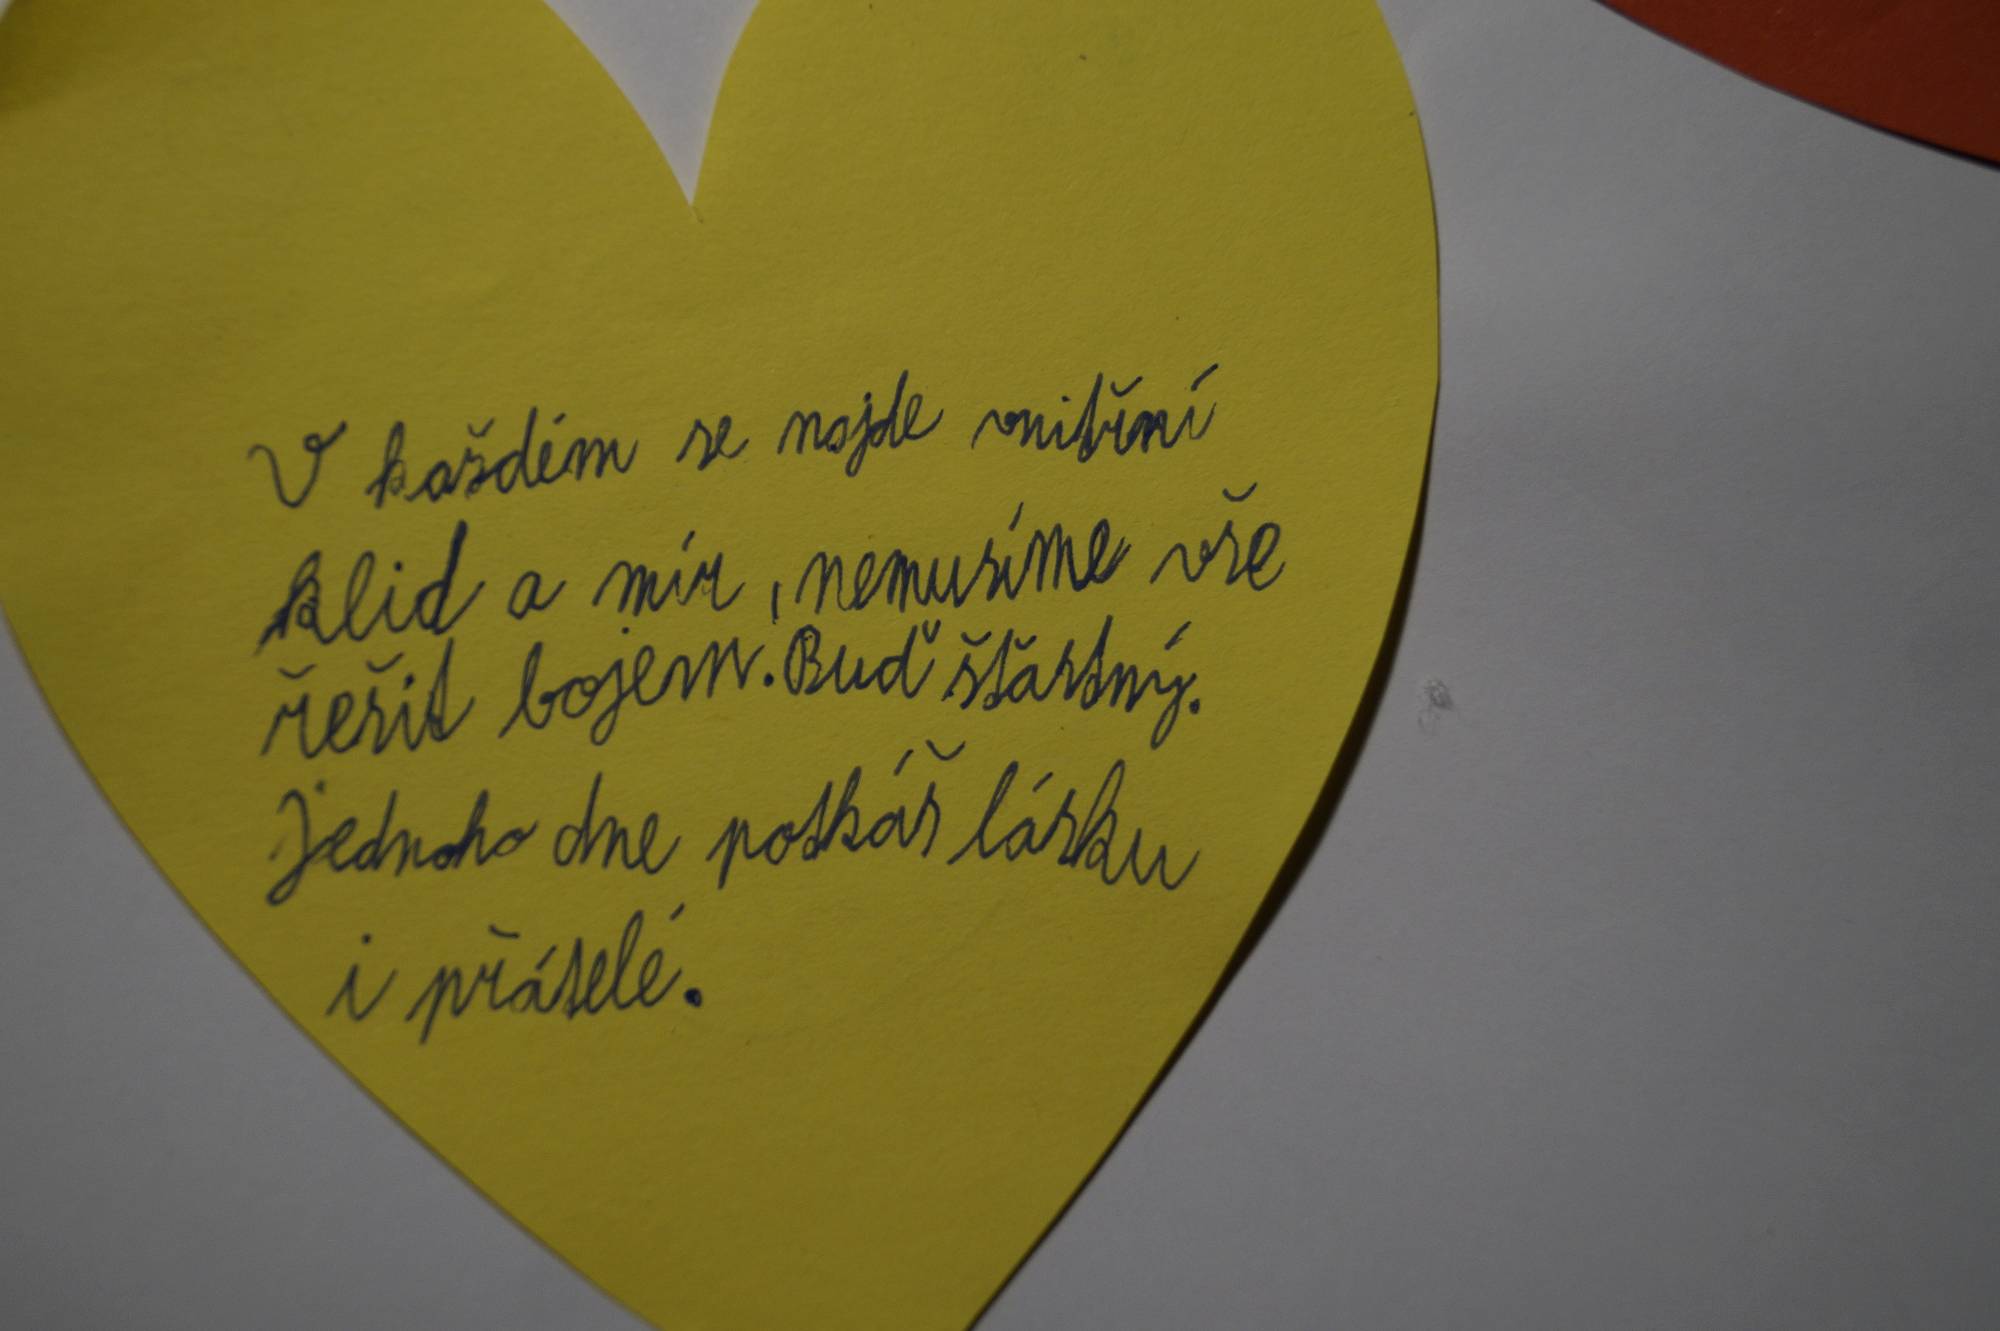 V každém se najde vnitřní
klid a mír, nemusíme vše
řešit bojem. Buď šťastný.
Jednoho dne potkáš lásku
i přátelé.